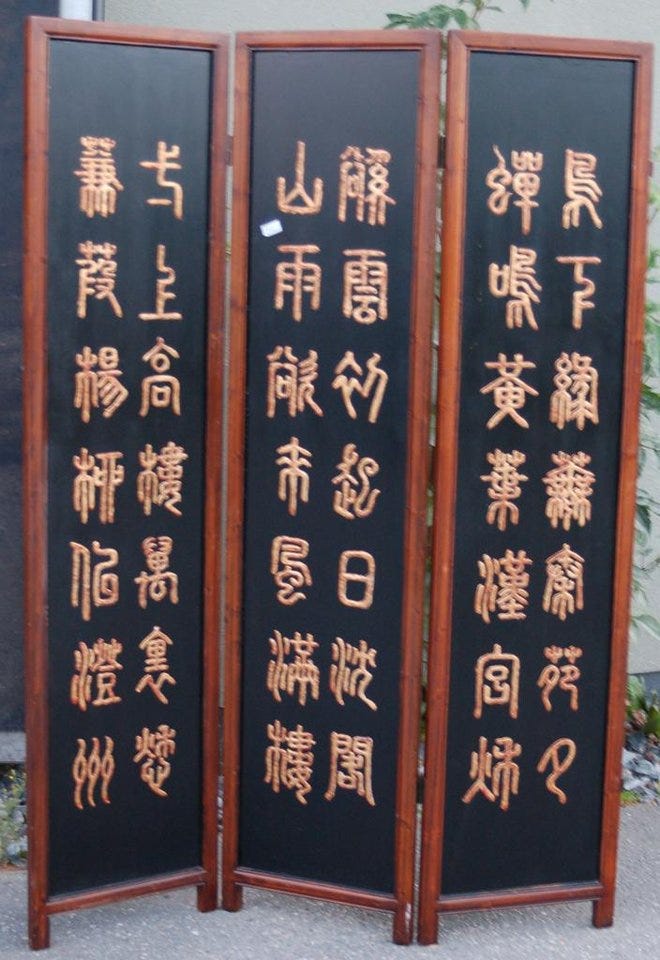 鳥下綠蕪秦苑夕
蟬鳴黃葉漢宮秋
谿雲初起日沈閣
山雨欲來風滿樓
弌上高樓萬裏愁
蒹葭楊柳似澄州